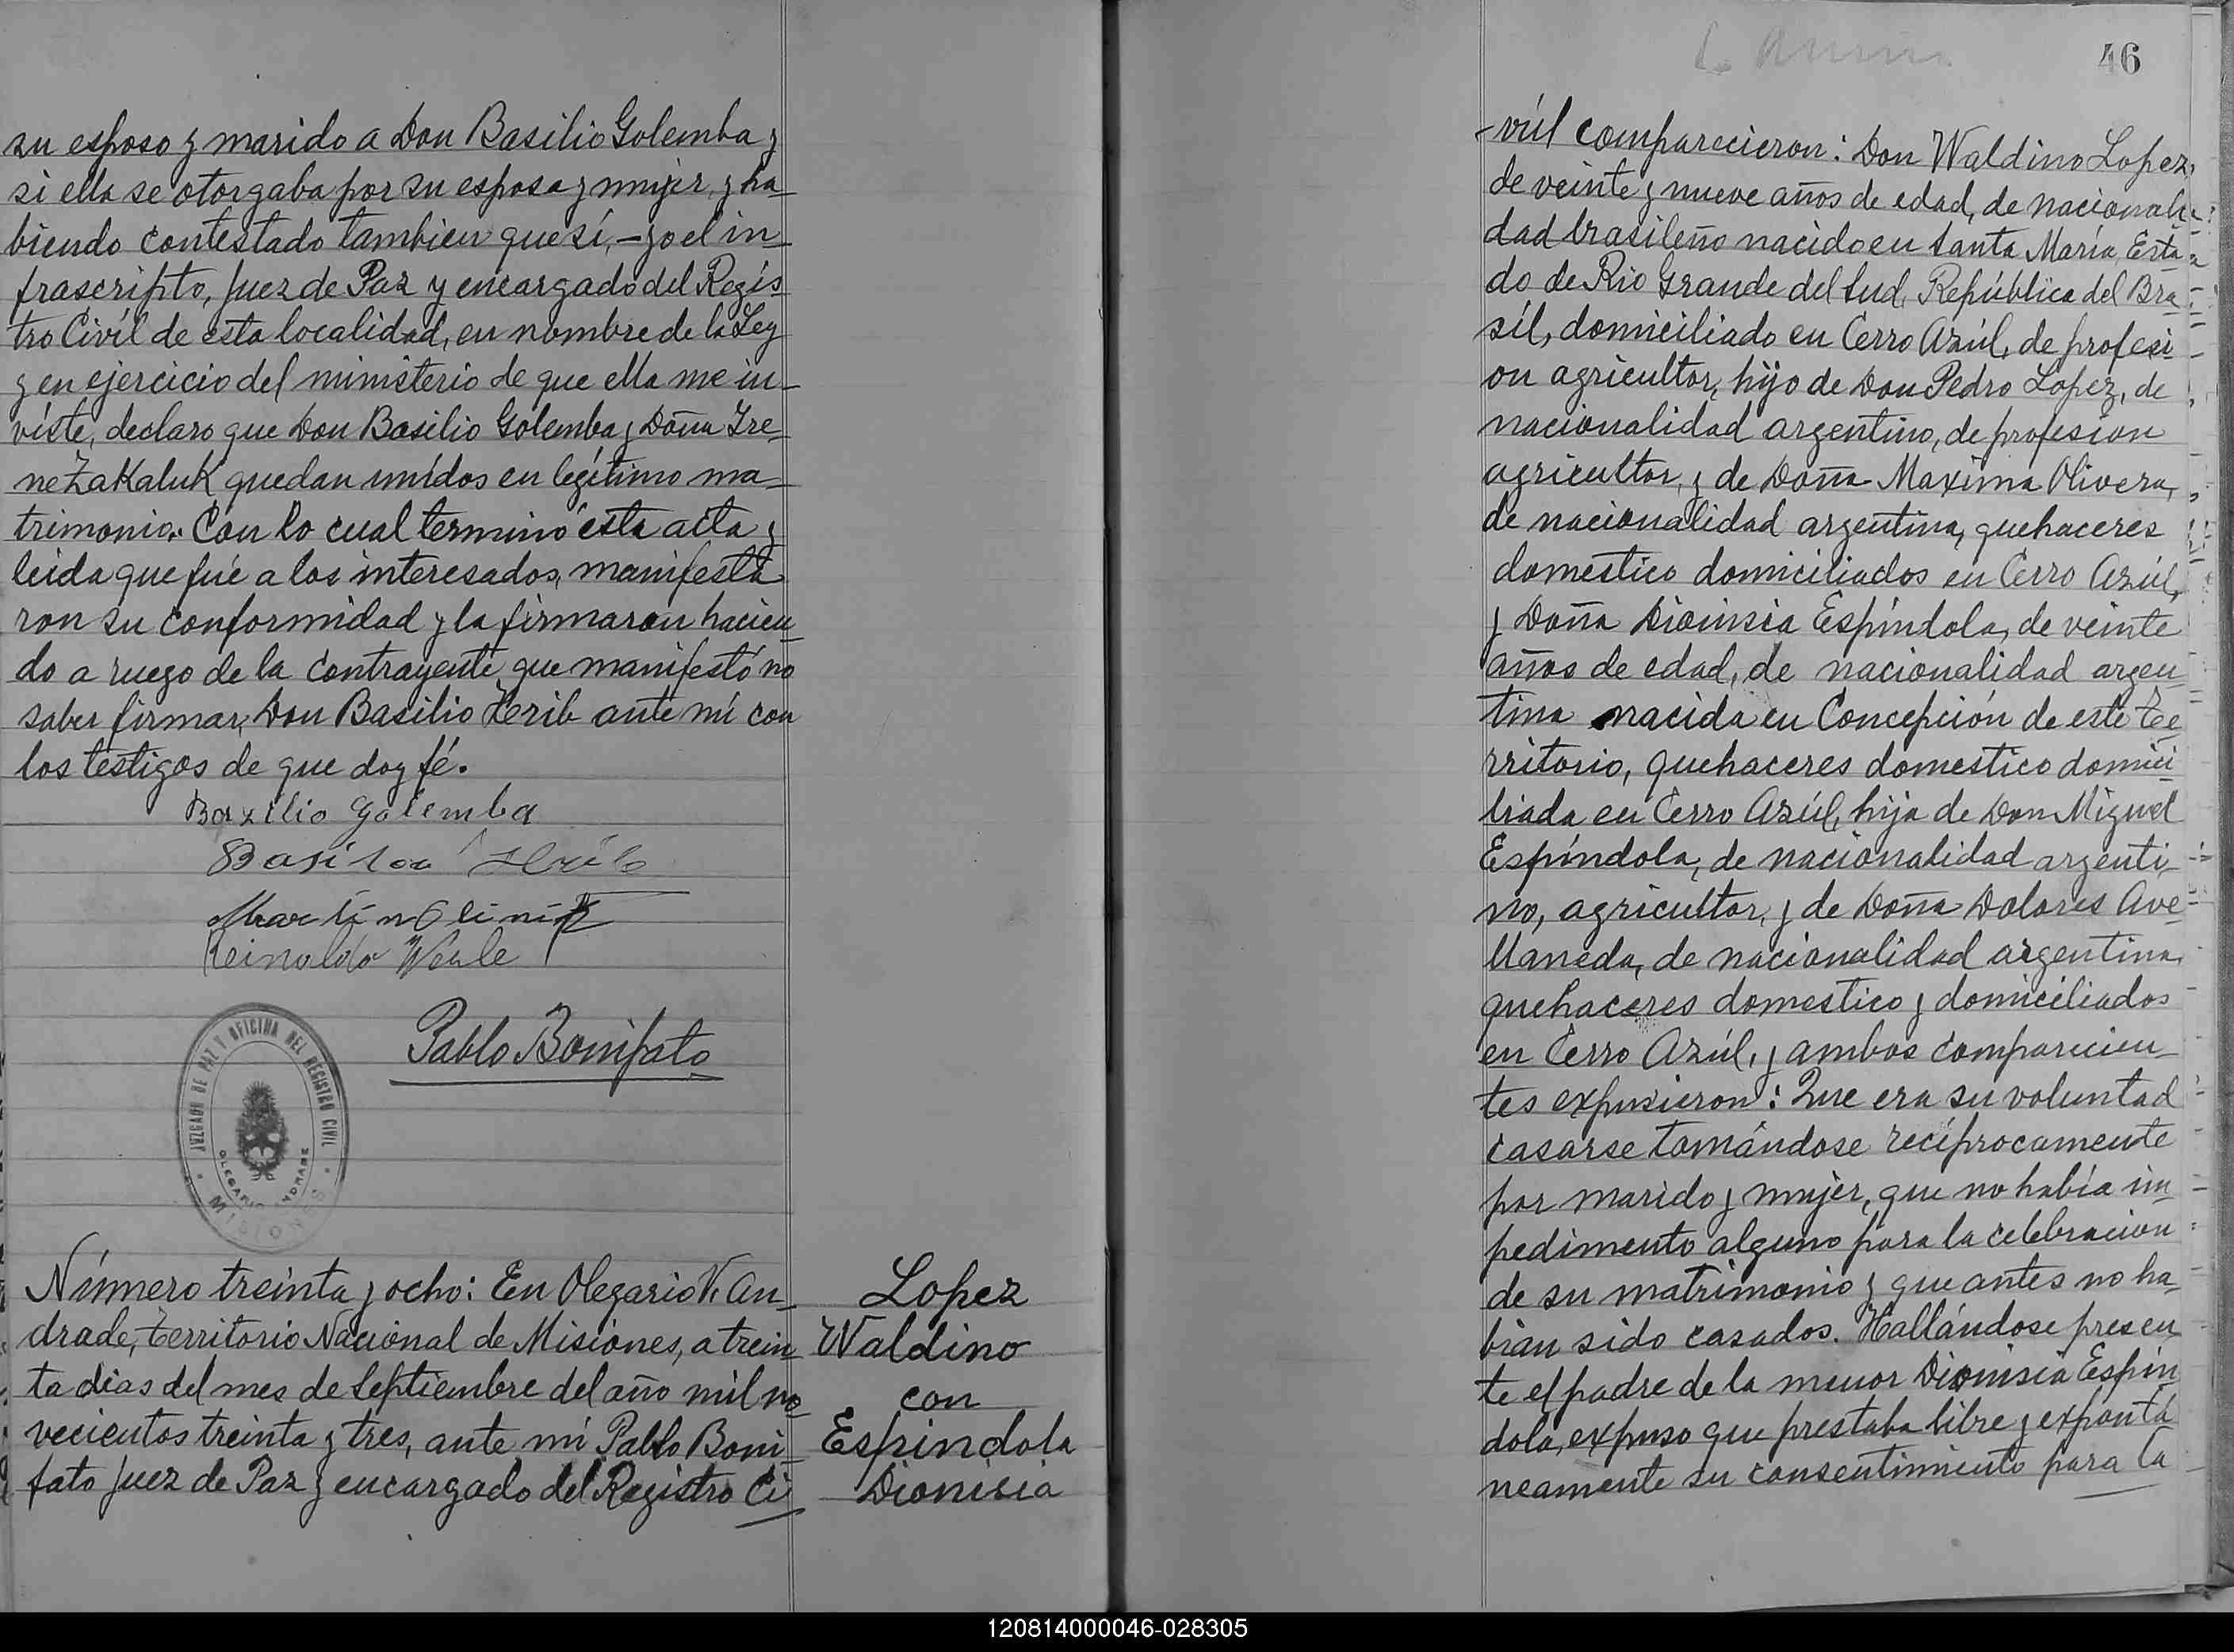 su esposo y marido a Don Basilio Golemba y
si ella se otorgaba por su esposa y mujer, y ha-
biendo contestado tambien que sí, - yo el in-
frascripto, Juez de Paz y encargado del Regis-
tro Civíl de esta localidad, en nombre de la Ley
y en ejercicio del ministerio de que ella me in-
viste, declaro que Don Basilio Golemba y Doña Ire-
ne Zakaluk quedan unídos en legítimo ma-
trimonio. Con lo cual terminó esta acta y
leida que fué a los interesados, manifesta
ron su conformidad y la firmaron hacien-
do a ruego de la contrayente que manifestó no
saber firmar, Don Basilio Herib ante mí con
los testigos de que doy fé.
Bazilio Golemba
Reinoldo Werle
Pablo Bonifato
JUZGADO DE PAZ Y OFICINA DEL REGISTRO CIVIL
OLEGARIO ANDRADE
MISIONES
Número treinta y ocho: En Olegario V. An-
drade, territorio Nacional de Misiones, a trein-
ta dias del mes de Septiembre del año mil no-
vecientos treinta y tres, ante mí Pablo Boni-
fato Juez de Paz y encargado del Registro Ci
Lopez
Waldino
con
Espindola
Dionisia
46
-víl comparecieron: Don Waldino Lopez,
de veinte y nueve años de edad, de nacionali-
dad brasileño nacido en Santa María, Esta-
do de Rio Grande del Sud, República del Bra-
síl, domiciliado en Cerro Azúl, de profesi-
on agricultor, hijo de Don Pedro Lopez, de
nacionalidad argentino, de profesion
agricultor, y de Doña Maxima Olivera,
de nacionalidad argentina, quehaceres
domestico domiciliados en Cerro Azúl,
y Doña Dioinsia Espíndola, de veinte
años de edad, de nacionalidad argen-
tina nacida en Concepción de este te-
rritorio, quehaceres domestico domici-
liada en Cerro Azúl, hija de Don Miguel
Espíndola, de nacionalidad argenti-
no, agricultor, y de Doña Dolores Ave-
llaneda, de nacionalidad argentina
quehaceres domestico y domiciliados
en Cerro Azúl, y ambos comparicien-
tes expusieron: Que era su voluntad
casarse tomándose recíprocamente
por marido y mujer, que no había im-
pedimento alguno para la celebracion
de su matrimonio y que antes no ha-
bian sido casados. Hallándose presen-
te el padre de la menor Dionisia Espin-
dola, expuso que prestaba libre y expontá
neamente su consentimiento para la
120814000046-028305